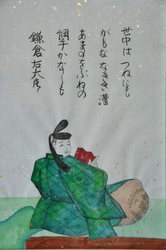 世中はつねにも
がもななぎさ漕
あまのをぶねの
綱手かなしも
鎌倉右大臣